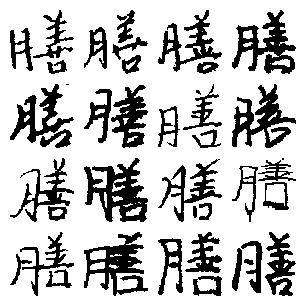 膳膳膳膳
膳膳膳膳
膳膳膳膳
膳膳膳膳